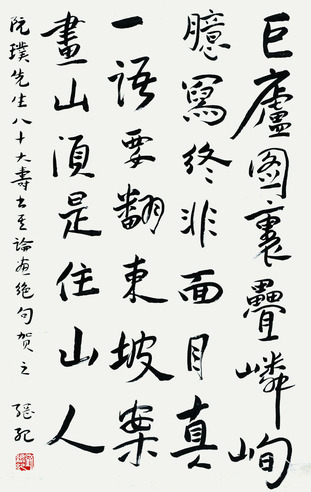 匡廬圖裏疊嶙峋
臆寫終非面目真
一語要翻東坡案
畫山須是住山人
阮璞先生八十大壽书其論画絕句贺之